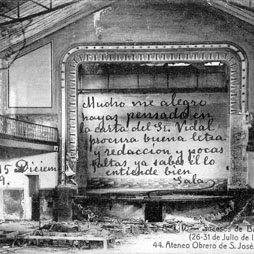 Mucho me alegro
hayas pensado en
la carta del Sr. Vidal
procura buena letra
y redaccion y pocas
faltas ya sabes el lo
entiende bien
Lala
15 Diciem
9.
sucesos de Ba
(26-31 de Julio de 1
44. Ateneo Obrero de S. José,